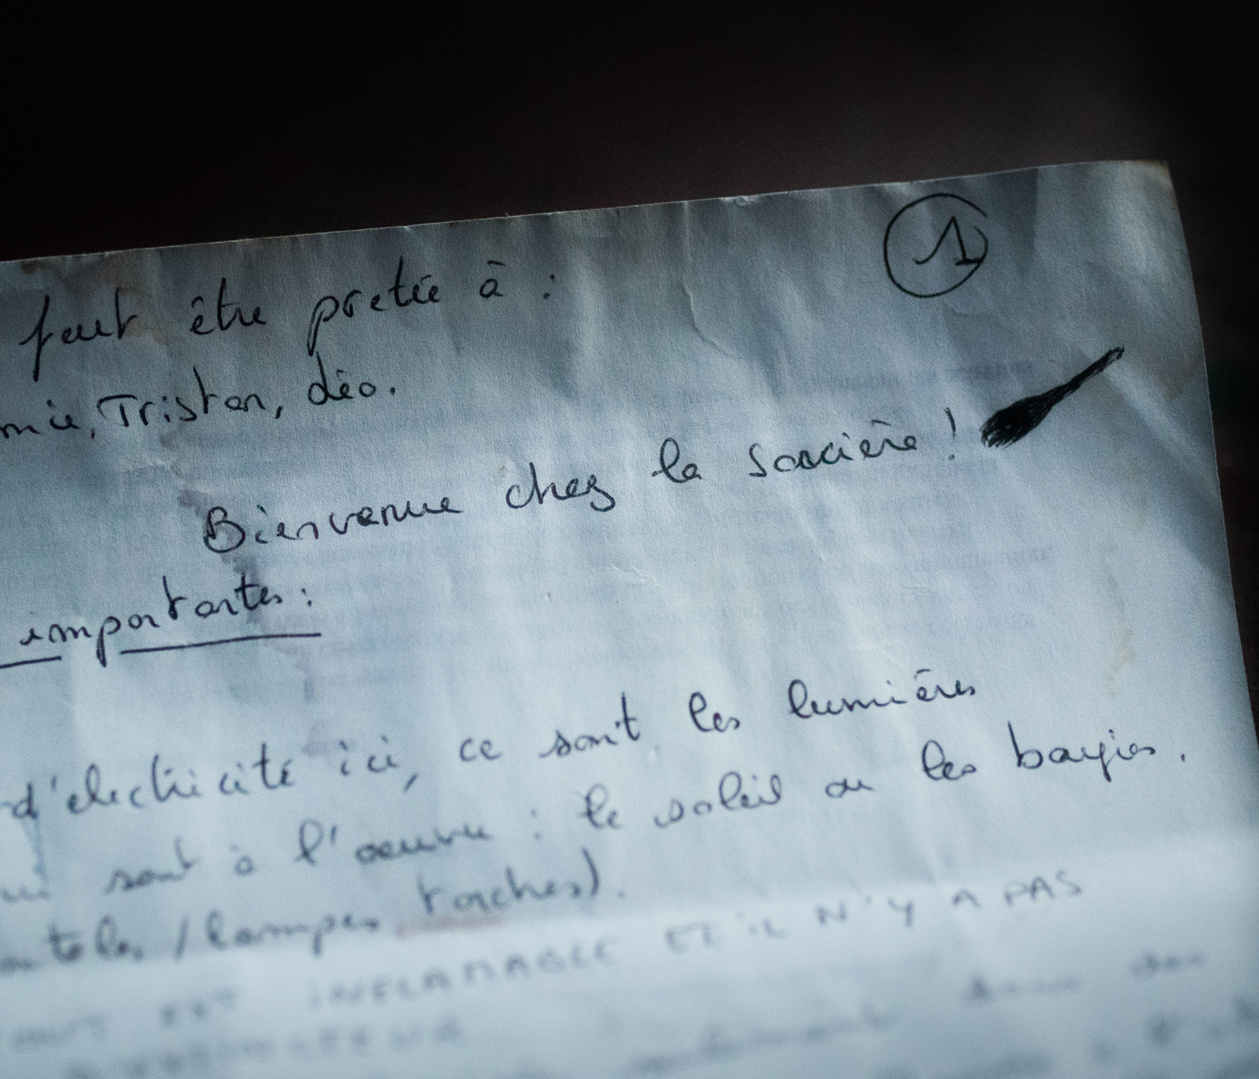 1
peut être pretée à :
mie, Tristan, Léo.
Bienvenue chez la sorcière !
importantes :
d'électricité ici, ce sont les lumières
ui sont à l'œuvre : le soleil ou les bougies.
/ lampes torches).
TOUT EST INFLAMABLE ET IL N'Y A PAS